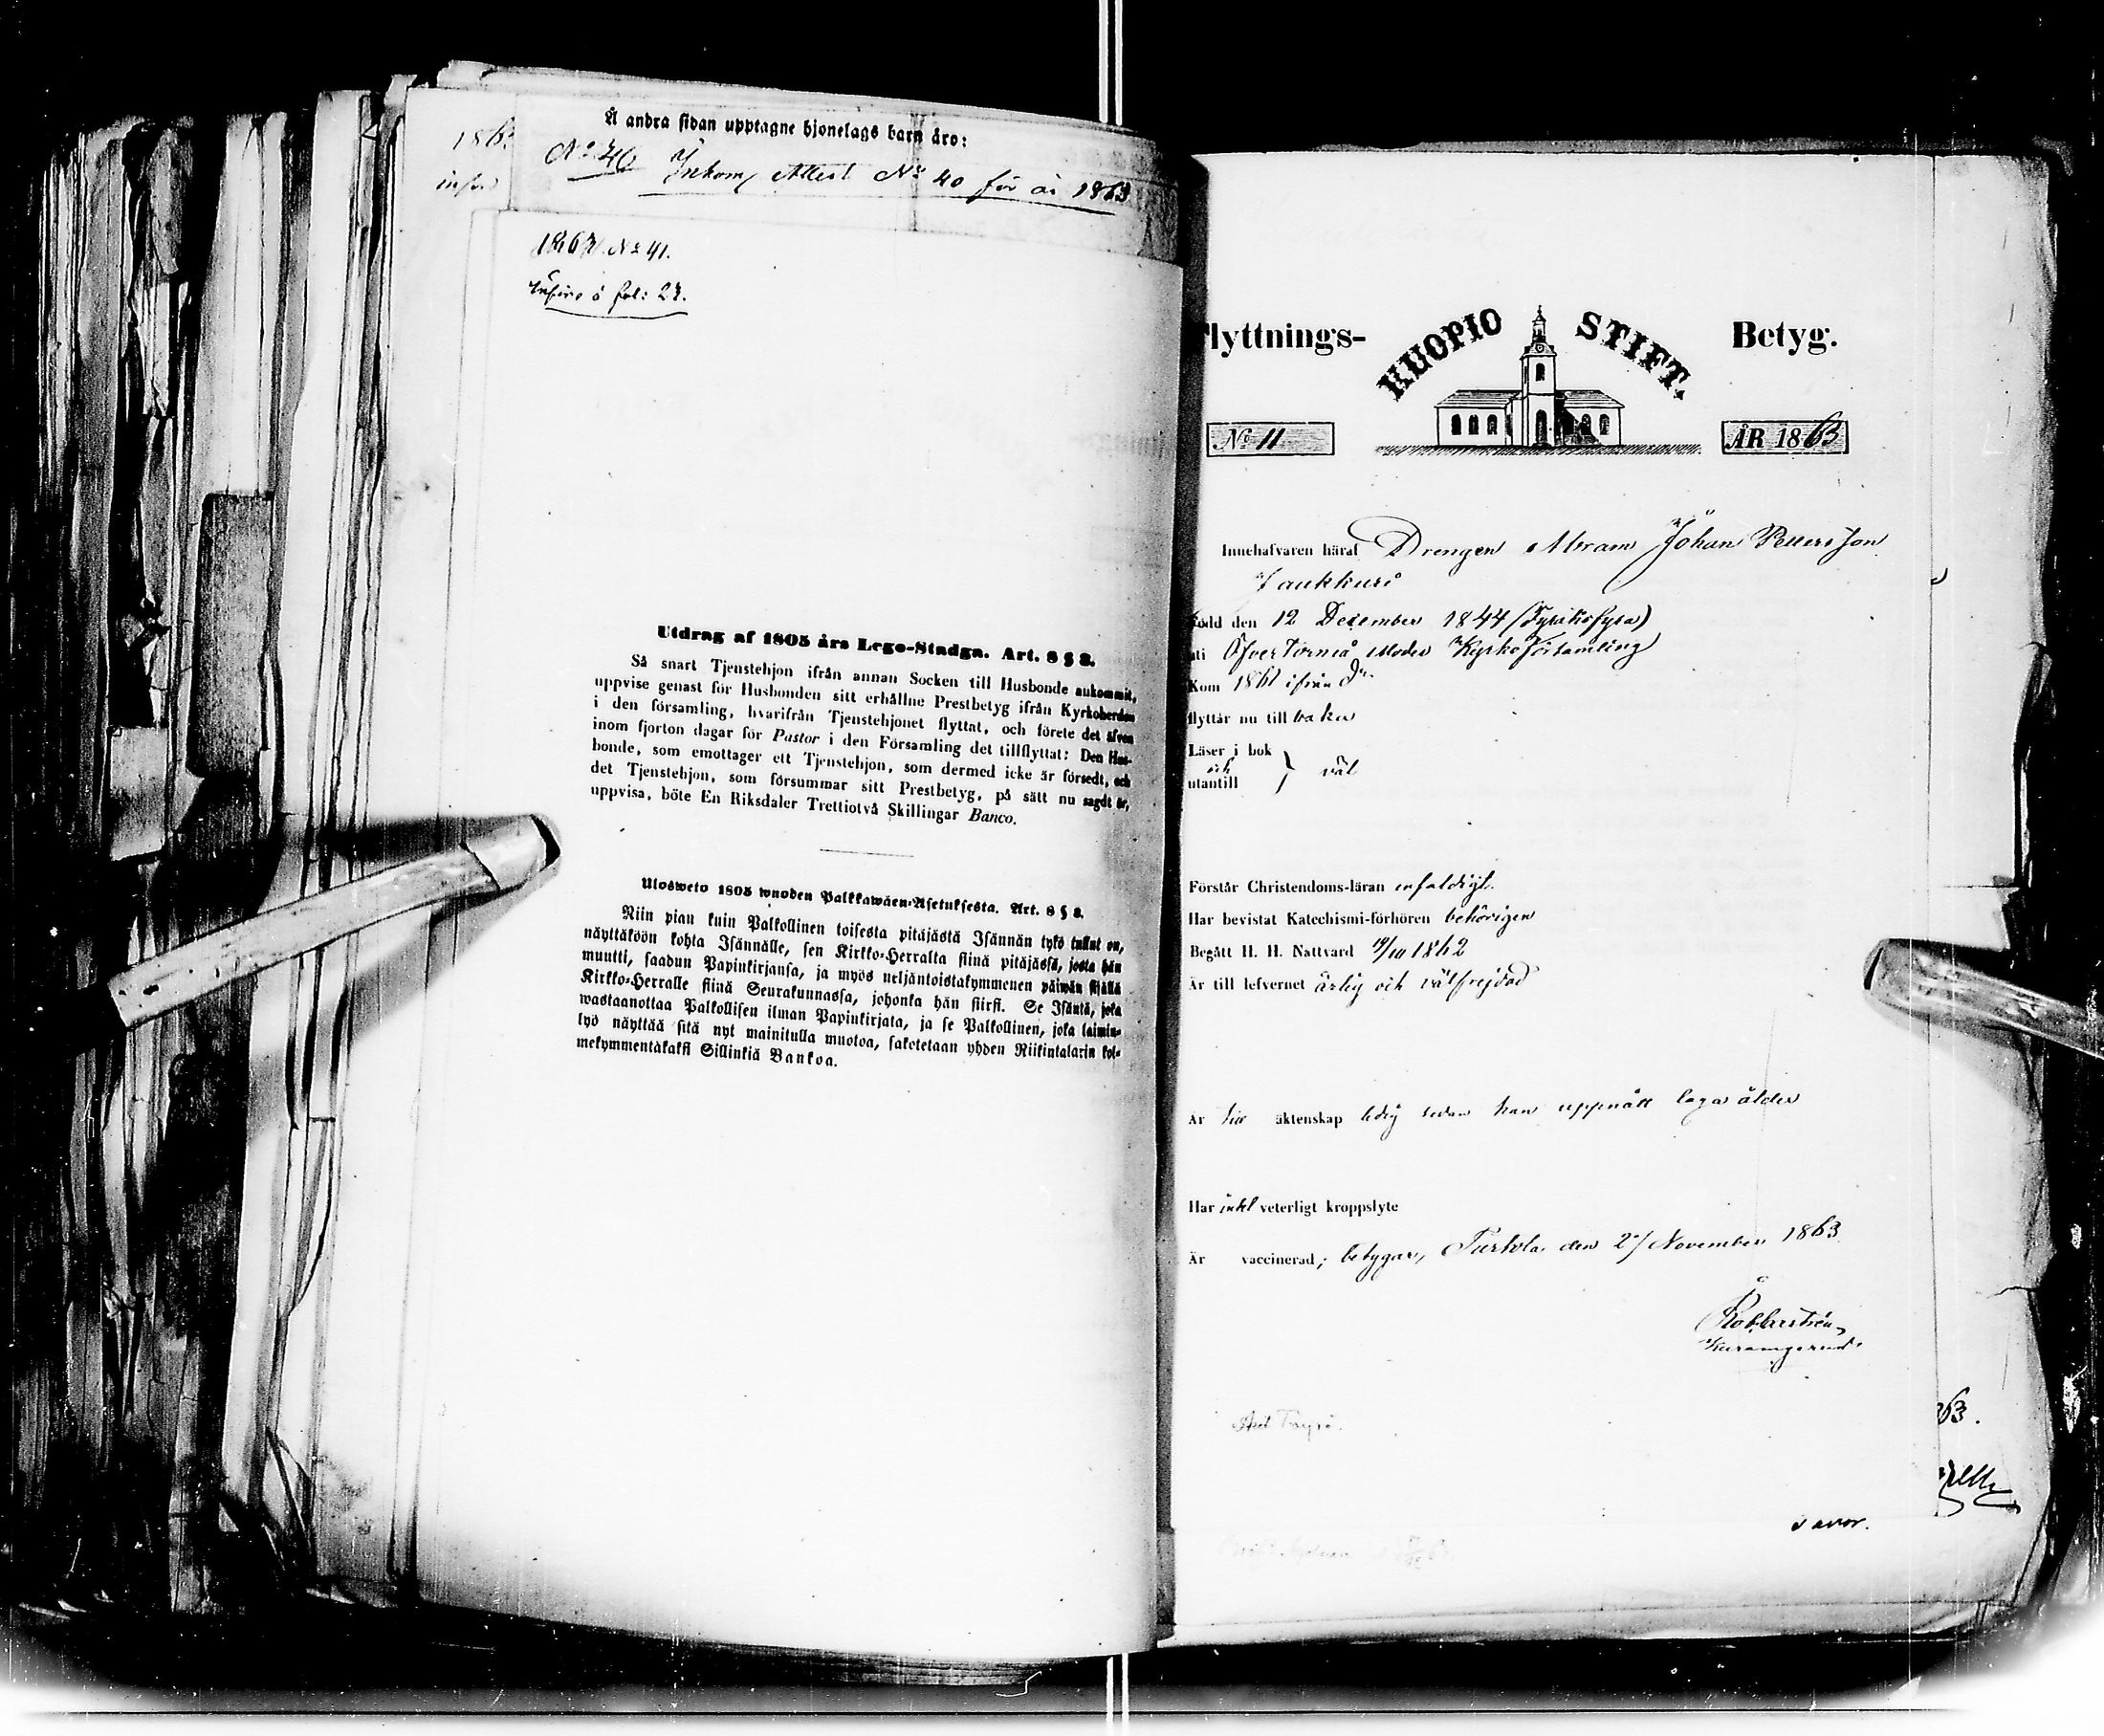 Å andra sidan upptagne hjonelags barn äro:
186
No 40 Inkom Attest No 40 för år 1863
1863. No 41.
Införd å fol: 27.
Utdrag af 1805 års Lego-Stadga. Art. 8 § 8.
Så snart Tjenstehjon ifrån annan Socken till Husbonde ankommit,
uppvise genast för Husbonden sitt erhållne Prestbetyg ifrån Kyrkoherden
i den församling, hvarifrån Tjenstehjonet flyttat, och förete det äfven
inom fjorton dagar för Pastor i den Församling det tillflyttat: Den Hus-
bonde, som emottager ett Tjenstehjon, som dermed icke är försedt, och
det Tjenstehjon, som försummar sitt Prestbetyg, på sätt nu sagdt är,
uppvisa, böte En Riksdaler Trettiotvå Skillingar Banco.
Ulosweto 1805 wuoden Palkkawäen-Asetuksesta. Art. 8 § 8.
Niin pian kuin Palkollinen toisesta pitäjästä Isännän tykö tullut on,
näyttäköön kohta Isännälle, sen Kirkko-Herralta siinä pitäjässä, josta hän
muutti, saadun Papinkirjansa, ja myös neljäntoistakymmenen päiwän sisällä
Kirkko-Herralle siinä Seurakunnassa, johonka hän siirsi. Se Isäntä, joka
wastaanottaa Palkollisen ilman Papinkirjata, ja se Palkollinen, joka laimin-
lyö näyttää sitä nyt mainitulla muotoa, sakotetaan yhden Riikintalarin kol-
mekymmentäkaksi Sillinkiä Bankoa.
lyttnings- KUOPIO STIFT. Betyg.
No 11 ÅR 1863
Innehafvaren häraf Drengen Abram Johan Pettersson
Född den 12 December 1844 (Fyratiofyra)
uti Öfver Torneå Moder Kyrko församling
Kom 1861 ifrån do
flyttar nu till baka
Läser i bok
och väl
utantill
Förstår Christendoms-läran enfaldigt.
Har bevistat Katechismi-förhören behörigen
Begått H. H. Nattvard 19/10 1862
Är till lefvernet ärlig och välfrejdad
Är till äktenskap ledig sedan han uppnått laga ålder
Har intet veterligt kroppslyte
Är vaccinerad; betygar, Turtola den 2/ November 1863
63.